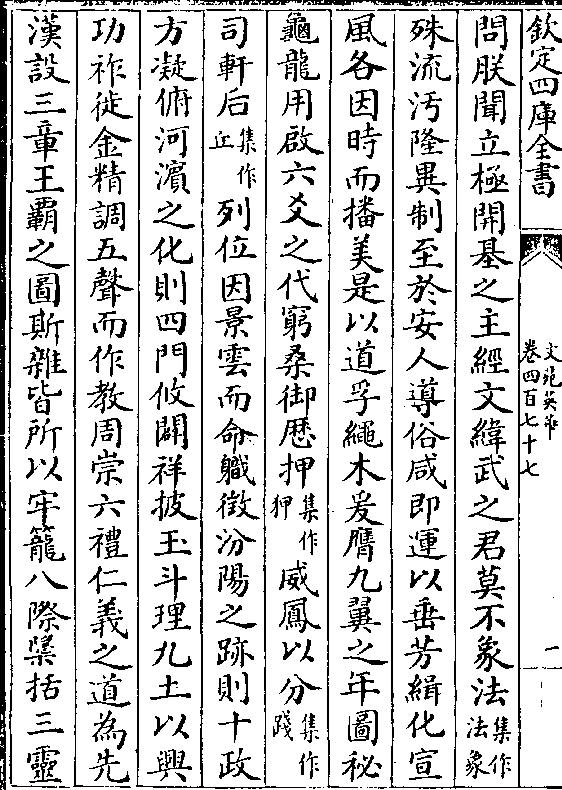 欽定四庫全書
文苑英華
卷四百七十七
一
問朕聞立極開基之主經文緯武之君莫不象法集作法象
殊流汚隆異制至於安人導俗咸即運以垂芳緝化宣
風各因時而播美是以道孚繩木爰膺九翼之年圖秘
龜龍用啟六爻之代窮桑御歴押集作狎威鳳以分集作踐
司軒后集作丘列位因景雲而命軄徴汾陽之跡則十政
方凝俯河濱之化則四門攸闢祥披玉斗理九土以興
功祚徙金精調五聲而作教周崇六禮仁義之道為先
漢設三章王霸之圖斯雜皆所以牢籠八際檃括三靈